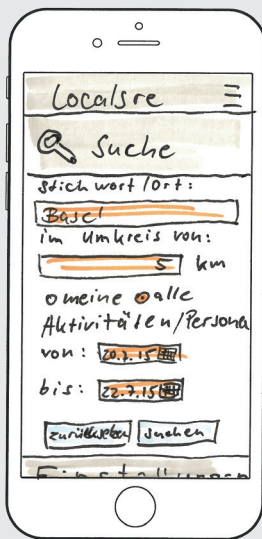 Localsre
Suche
Stichwort/Ort:
Basel
im Umkreis von:
5 km
meine alle
Aktivitäten/Persona
von: 20.7.15
bis: 22.7.15
zurücksetzen suchen
Einstellungen